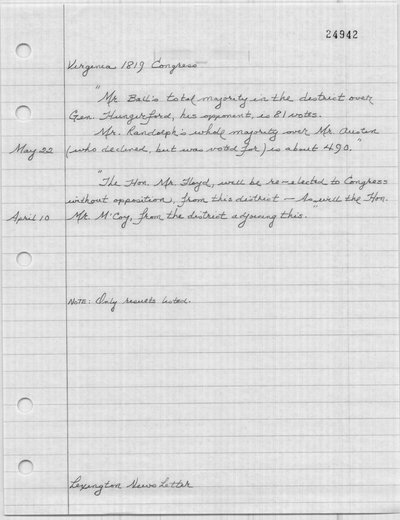 24942
Virginia 1819 Congress
"Mr. Ball's total majority in the district over
Gen. Hungerford, his opponent, is 81 votes.
Mr. Randolph's whole majority over Mr. Austin
May 22 (who declined, but was voted for) is about 490."
"The Hon. Mr. Floyd, will be re-elected to Congress
without opposition, from this district — As will the Hon.
April 10 Mr. M'Coy, from the district adjoining this."
NOTE: Only results listed.
Lexington News Letter